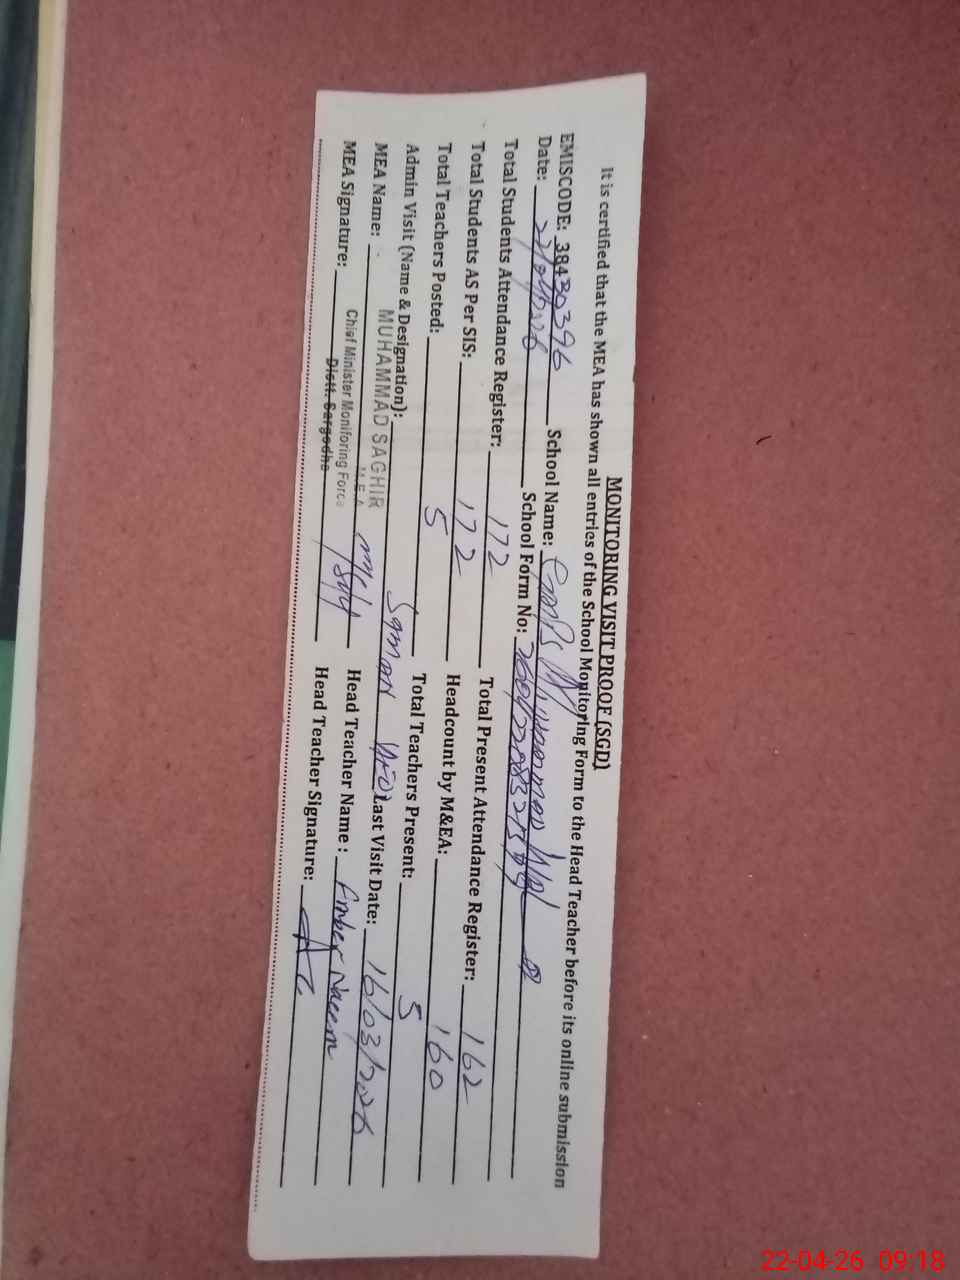 MONITORING VISIT PROOF (SGD)
It is certified that the MEA has shown all entries of the School Monitoring Form to the Head Teacher before its online submission
EMISCODE: 38430396 School Name:
Date: School Form No:
Total Students Attendance Register: 172 Total Present Attendance Register: 162
Total Students AS Per SIS: 172 Headcount by M&EA: 160
Total Teachers Posted: 5 Total Teachers Present: 5
Admin Visit (Name & Designation): Last Visit Date: 16/03/2026
MEA Name: MUHAMMAD SAGHIR Head Teacher Name : Amber Naeem
M.E.A
MEA Signature: Chief Minister Monitoring Force Head Teacher Signature:
Distt. Sargodha
22-04-26 09:18